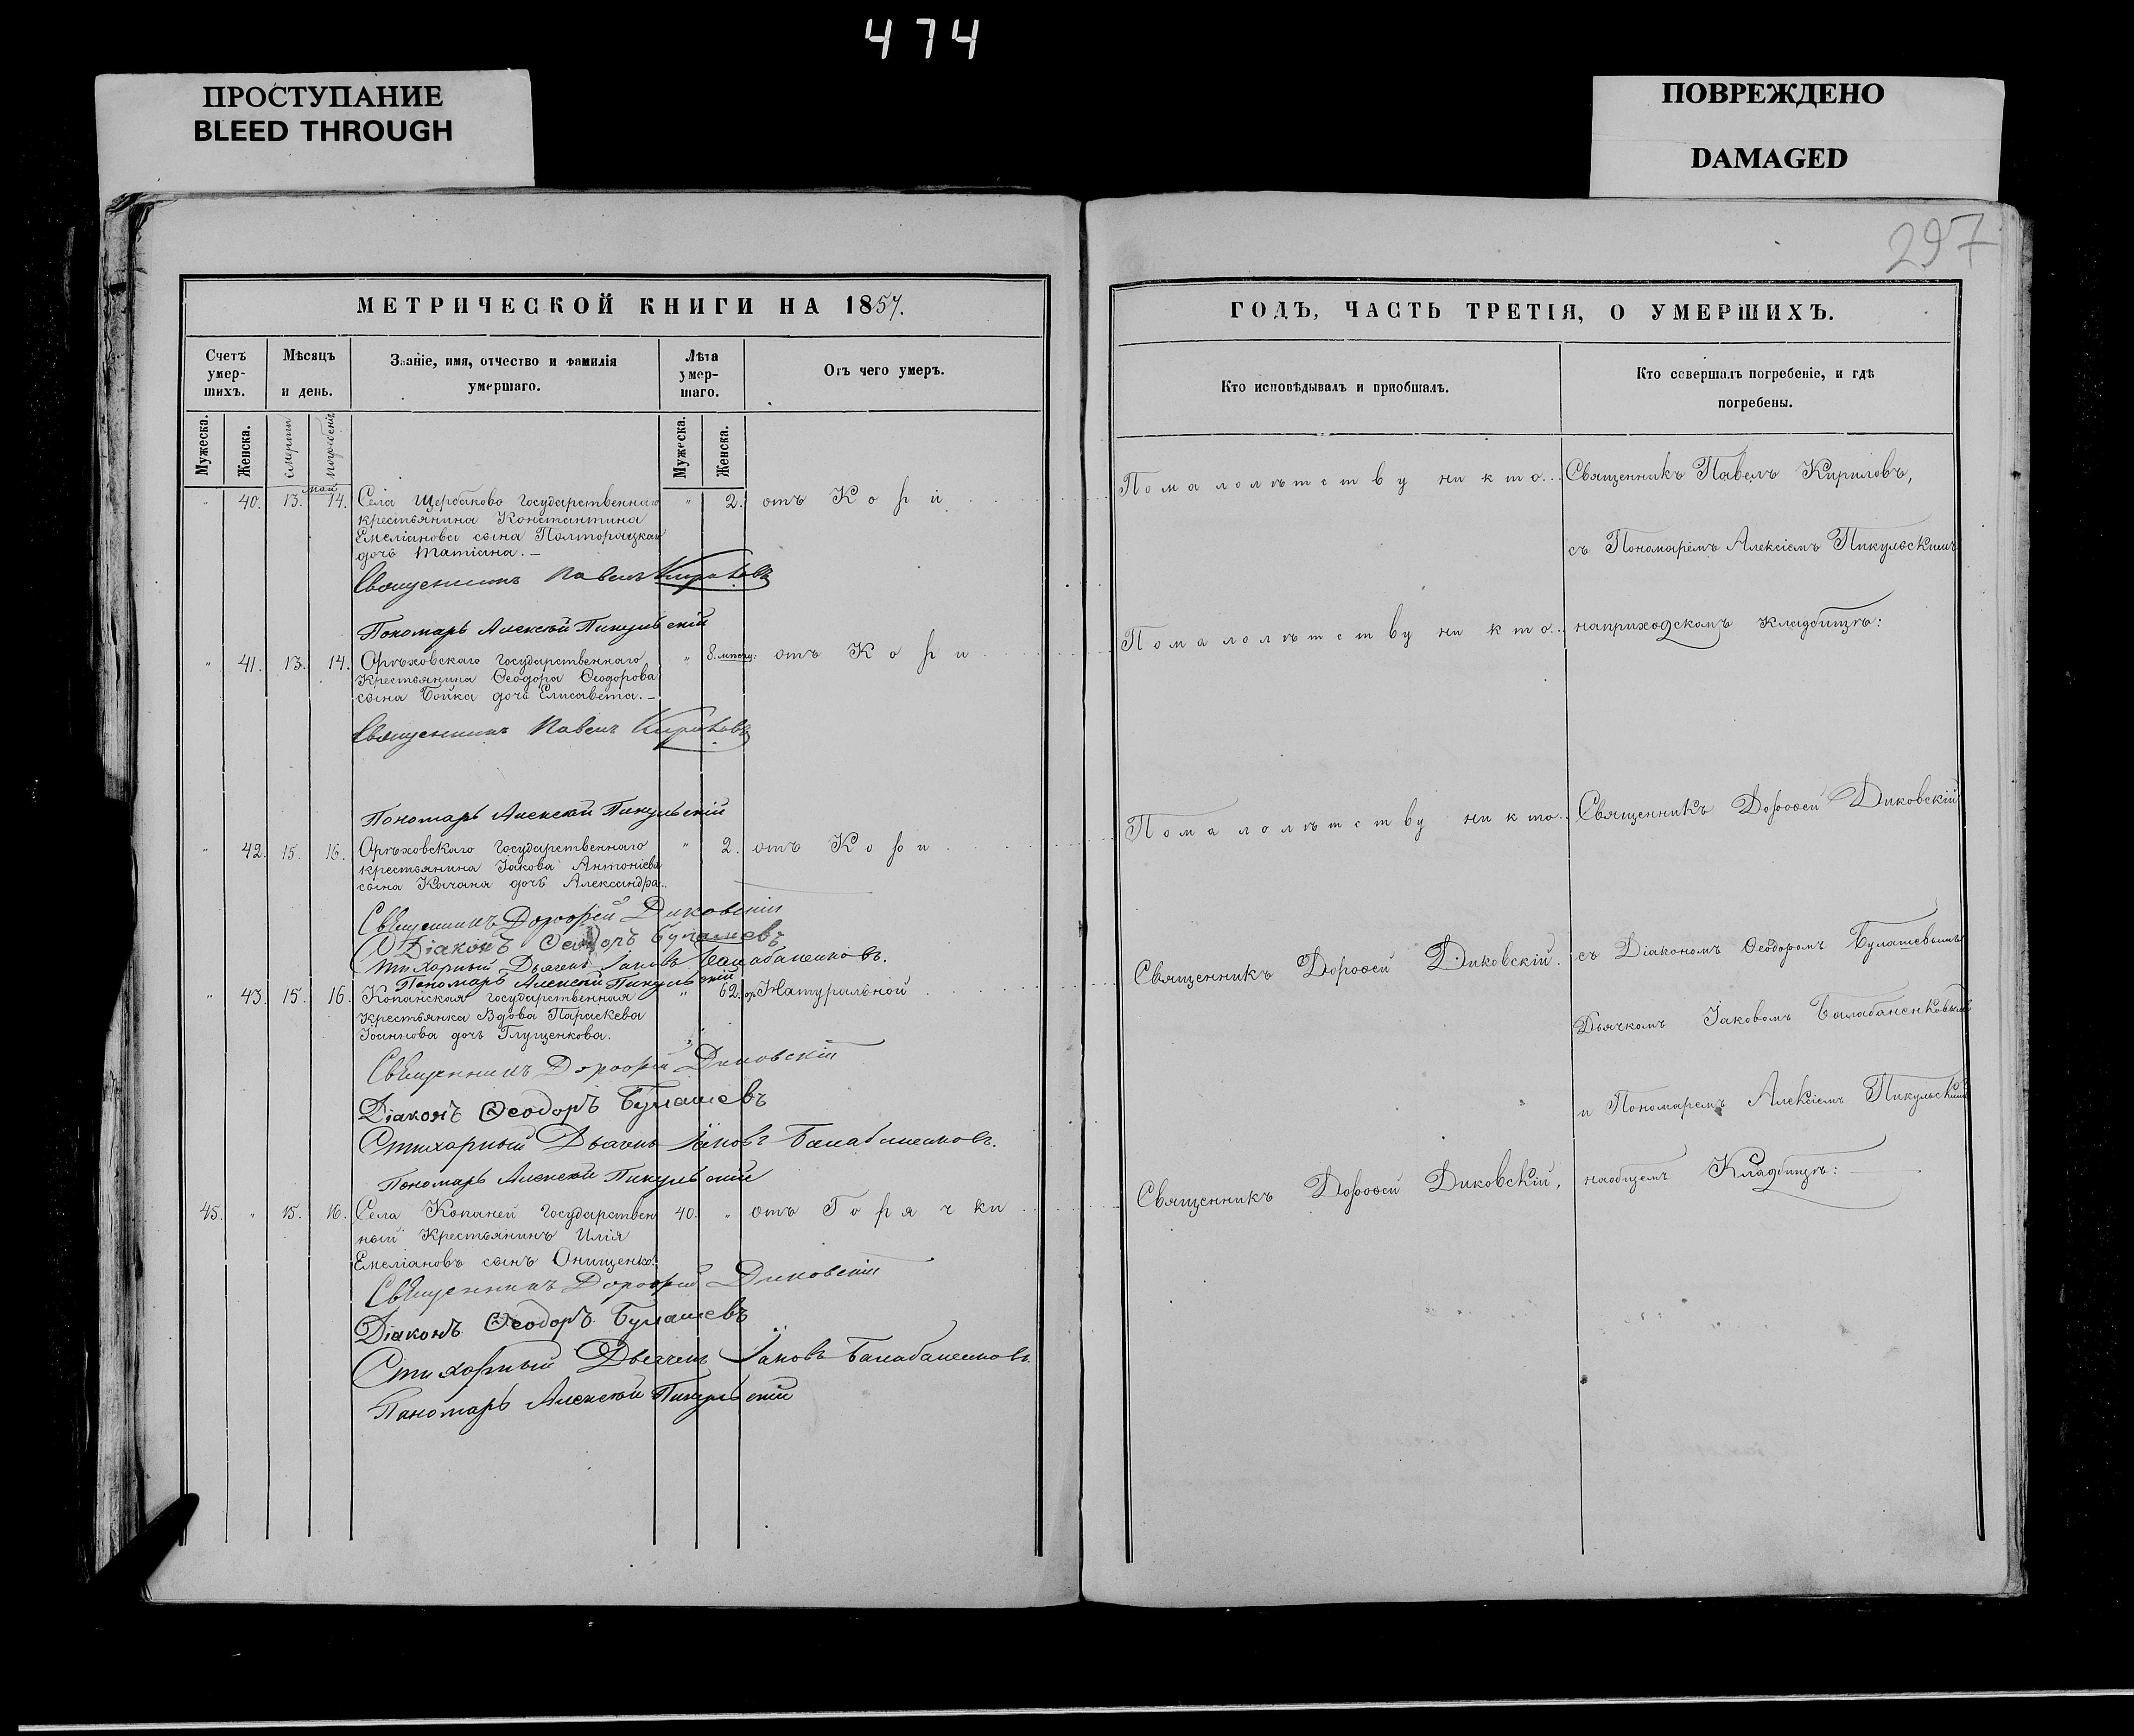 474
ПРОСТУПАНИЕ
BLEED THROUGH
ПОВРЕЖДЕНО
DAMAGED
297
МЕТРИЧЕСКОЙ КНИГИ НА 1857.
Счетъ умер-шихъ.
Мѣсяцъ и день.
Званіе, имя, отчество и фамилія умершаго.
Лѣта умер-шаго.
Отъ чего умеръ.
Мужеска.
Женска.
смерти
погребенія
Мужеска.
Женска.
май
" 40. 13. 14. Села Щербаково Государственнаго " 2. отъ Кори
крестьянина Константина
Емеліанова сына Полторацкаго
дочь Татіана. —
Священникъ Павелъ Кириловъ
Пономарь Алексѣй Пикульскій
" 41. 13. 14. Орѣховскаго Государственнаго " 8. мѣсяц: отъ Кори
Крестьянина Ѳеодора Ѳеодорова
сына Бойка дочь Елисавета. —
Священникъ Павелъ Кириловъ
Пономарь Алексѣй Пикульскій
" 42. 15. 16. Орѣховскаго Государственнаго " 2. отъ Кори
крестьянина Іакова Антоніева
сына Качана дочь Александра.
Священникъ Дороѳей Диковскій
Діаконъ Ѳеодоръ Булашевъ
Стихарный Дьячекъ Іаковъ Балабаненковъ.
Пономарь Алексѣй Пикульскій
" 43. 15. 16. Копанская государственная " 62. от Натуральной
Крестьянка Вдова Параскева
Іоаннова дочь Глущенкова.
Священникъ Дороѳей Диковскій
Діаконъ Ѳеодоръ Булашевъ
Стихарный Дьячекъ Іаковъ Балабаненковъ.
Пономарь Алексѣй Пикульскій
45. " 15. 16. Села Копаней Государствен 40. " отъ Горячки
ный Крестьянинъ Илія
Емеліановъ сынъ Онищенко.
Священникъ Дороѳей Диковскій
Діаконъ Ѳеодоръ Булашевъ
Стихарный Дьячекъ Іаковъ Балабаненковъ.
Пономарь Алексѣй Пикульскій
ГОДЪ, ЧАСТЬ ТРЕТІЯ, О УМЕРШИХЪ.
Кто исповѣдывалъ и пріобщалъ.
Кто совершалъ погребеніе, и гдѣ
погребены.
Помалолѣтству никто.. Священникъ Павелъ Кириловъ,
съ Пономаремъ Алексіемъ Пикульскимъ
Помалолѣтству никто.. наприходскомъ кладбищѣ:
Помалолѣтству никто.. Священникъ Дороѳей Диковскій
Священникъ Дороѳей Диковскій. съ Діакономъ Ѳеодоромъ Булашевымъ
Дьячкомъ Іаковомъ Балабаненковымъ
и Пономаремъ Алексіемъ Пикульскимъ
Священникъ Дороѳей Диковскій, наобщемъ Кладбищѣ: